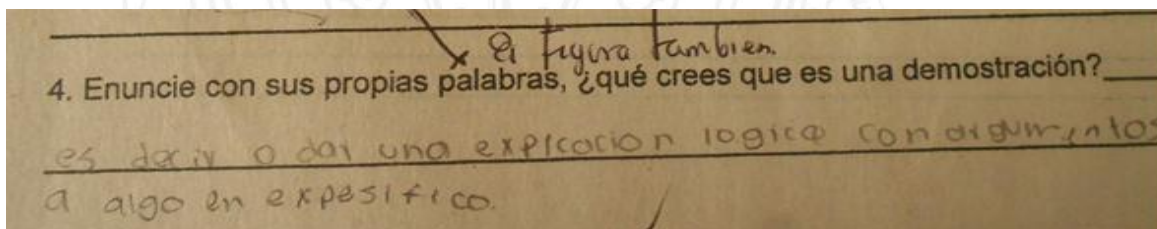 figura tambien.
4. Enuncie con sus propias palabras, ¿qué crees que es una demostración?____
es decir o dar una explcacion logica con argumentos
a algo en expesifico.